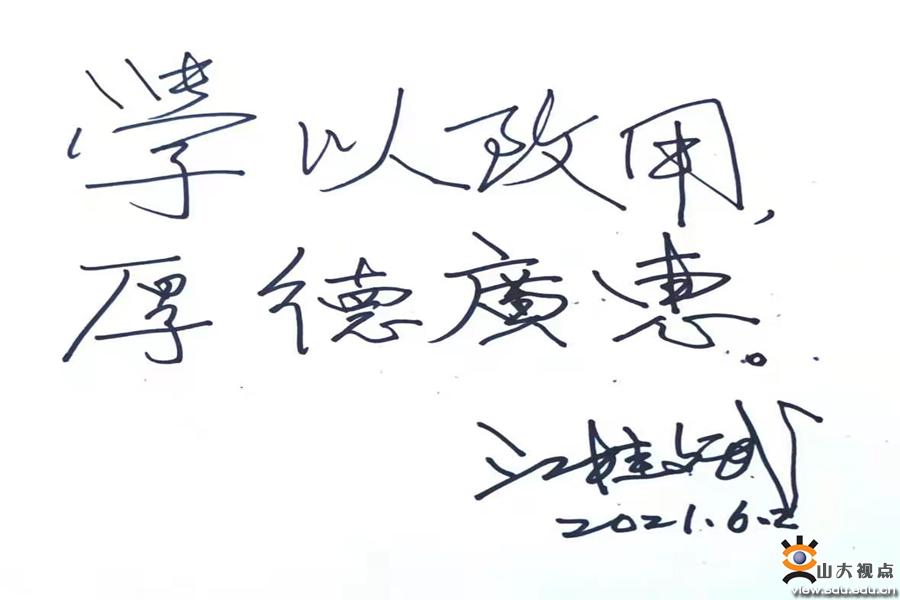 學以致用,
厚德廣惠。
江桂斌
2021.6.2
山大视点
view.sdu.edu.cn